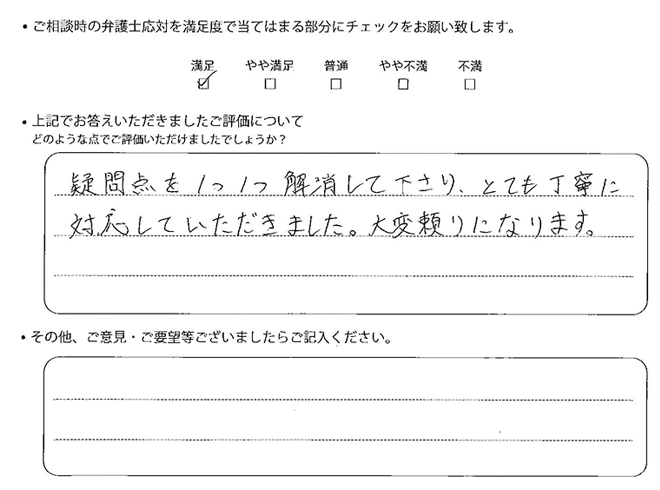 ・ご相談時の弁護士応対を満足度で当てはまる部分にチェックをお願い致します。
満足 やや満足 普通 やや不満 不満
・上記でお答えいただきましたご評価について
どのような点でご評価いただけましたでしょうか？
疑問点を1つ1つ解消して下さり、とても丁寧に
対応していただきました。大変頼りになります。
・その他、ご意見・ご要望等ございましたらご記入ください。